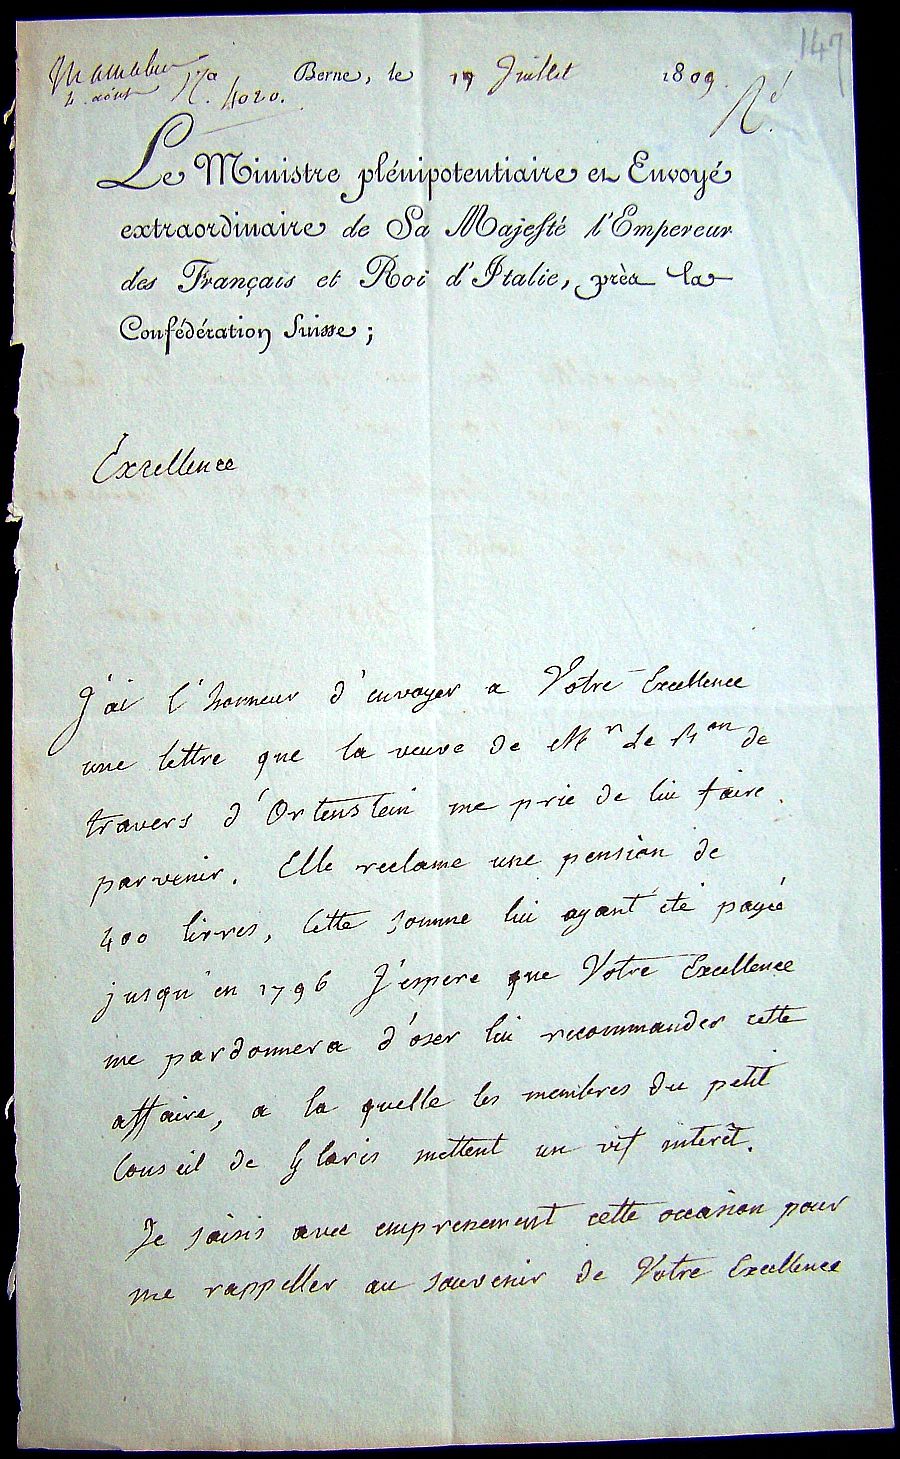 147
4. août Nª. 4020.
Berne, le 17 Juillet 1809.
Ré
Le Ministre plénipotentiaire et Envoyé
extraordinaire de Sa Majesté l'Empereur
des Français et Roi d'Italie, près la
Confédération Suisse;
Excellence
J'ai l'honneur d'envoyer a Votre Excellence
une lettre que la veuve de Mr Le Bon de
travers d'Ortenstein me prie de lui faire
parvenir. Elle reclame une pension de
400 livres, Cette somme lui ayant été payée
jusqu'en 1796 J'espere que Votre Excellence
me pardonnera d'oser lui recommander cette
affaire, a la quelle les membres du petit
Conseil de Glaris mettent un vif interêt.
Je saisis avec empressement cette occasion pour
me rappeller au souvenir de Votre Excellence